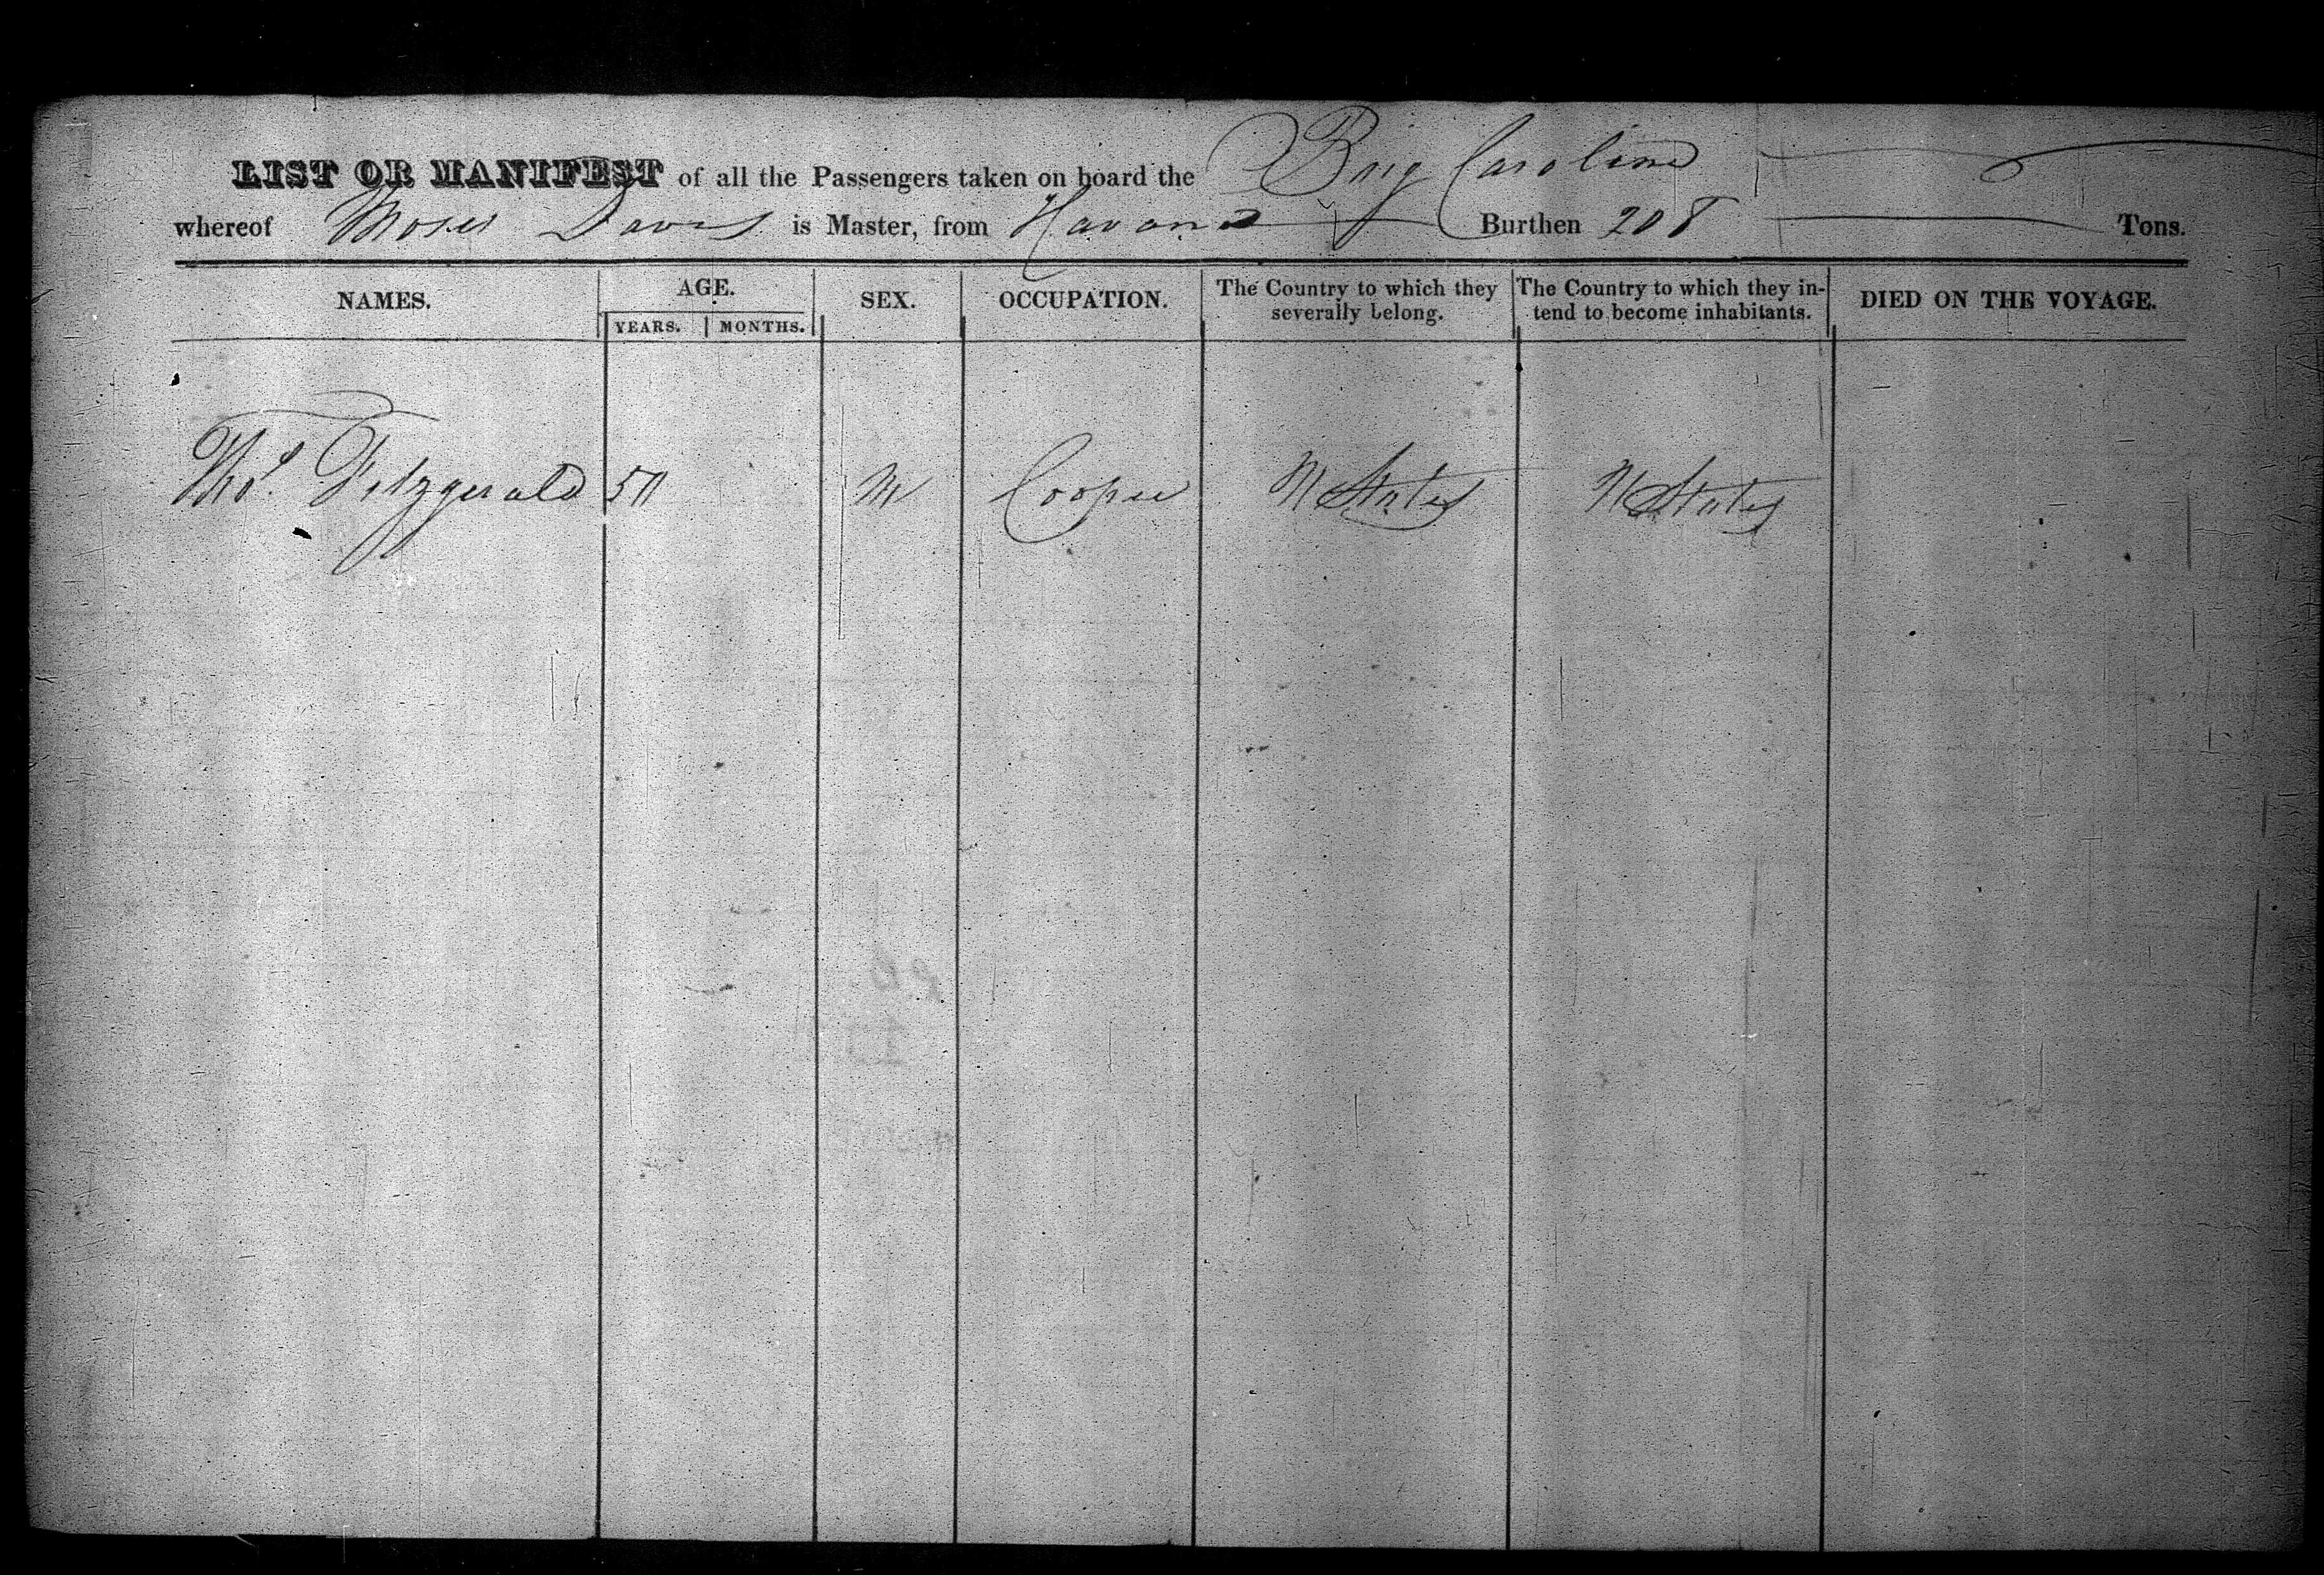 LIST OR MANIFEST of all the Passengers taken on board the Brig Caroline
whereof Moses Davis is Master, from Havana Burthen 208 Tons.
NAMES. AGE. SEX. OCCUPATION. The Country to which they severally belong. The Country to which they intend to become inhabitants. DIED ON THE VOYAGE.
YEARS. MONTHS.
Thos. Fitzgerald 50 M Cooper U States U States